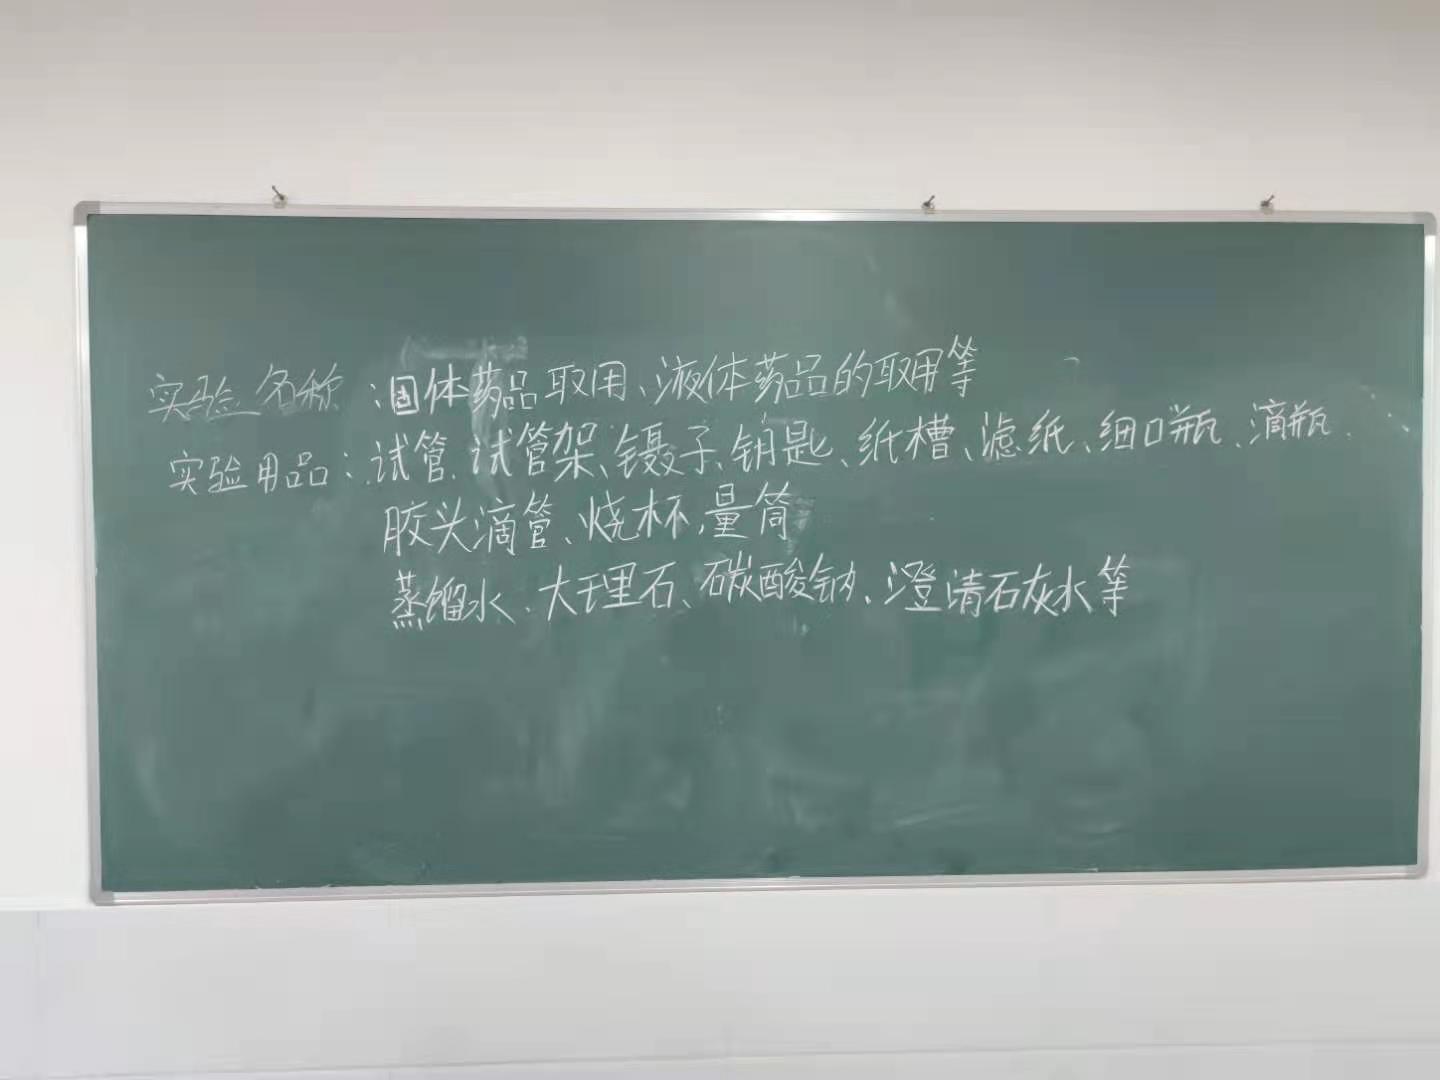 实验名称：固体药品取用、液体药品的取用等
实验用品：试管、试管架、镊子、钥匙、纸槽、滤纸、细口瓶、滴瓶、
胶头滴管、烧杯，量筒
蒸馏水、大理石、碳酸钠、澄清石灰水等